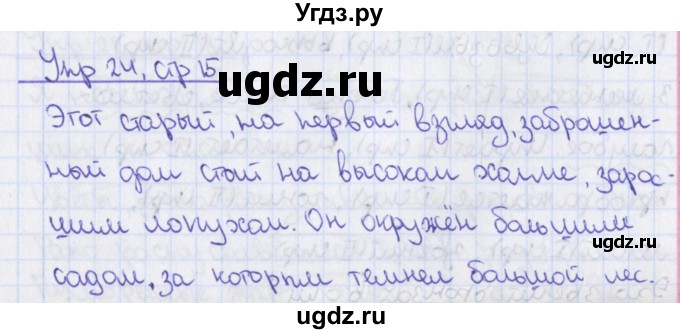 Угдз.ру
Упр 24, стр 15
ugdz.ru
Этот старый, на первый взгляд, заброшен-
ный дом стоит на высоком холме, зарос-
шим лопухом. Он окружён большим
садом, за которым темнел большой лес.
ugdz.ru
ugdz.ru
ugdz.ru
ugdz.ru